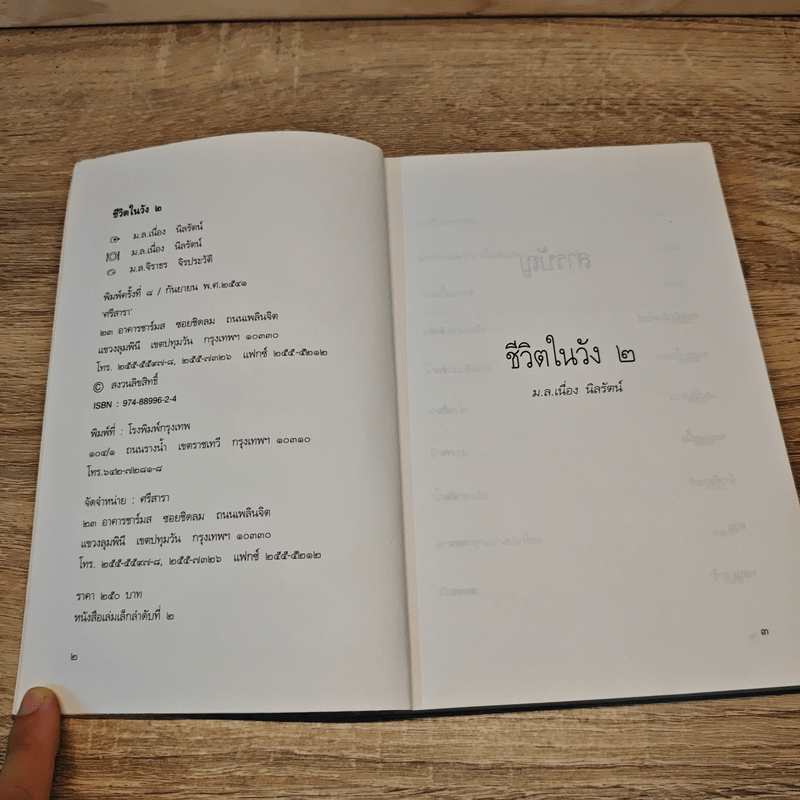 ชีวิตในวัง ๒
ม.ล.เนื่อง นิลรัตน์
ม.ล.เนื่อง นิลรัตน์
ม.ล.จิราธร จิรประวัติ
พิมพ์ครั้งที่ ๘ / กันยายน พ.ศ.๒๕๔๑
'ศรีสารา'
๒๓ อาคารชาร์มส ซอยชิดลม ถนนเพลินจิต
แขวงลุมพินี เขตปทุมวัน กรุงเทพฯ ๑๐๓๓๐
โทร. ๒๕๕-๕๕๙๗-๘, ๒๕๕-๗๓๒๖ แฟกซ์ ๒๕๕-๕๒๑๒
© สงวนลิขสิทธิ์
ISBN : 974-88996-2-4
พิมพ์ที่ : โรงพิมพ์กรุงเทพ
๑๐๔/๑ ถนนรางน้ำ เขตราชเทวี กรุงเทพฯ ๑๐๓๑๐
โทร.๖๔๒-๗๒๘๑-๘
จัดจำหน่าย : ศรีสารา
๒๓ อาคารชาร์มส ซอยชิดลม ถนนเพลินจิต
แขวงลุมพินี เขตปทุมวัน กรุงเทพฯ ๑๐๓๓๐
โทร. ๒๕๕-๕๕๙๗-๘, ๒๕๕-๗๓๒๖ แฟกซ์ ๒๕๕-๕๒๑๒
ราคา ๒๕๐ บาท
หนังสือเล่มเล็กลำดับที่ ๒
๒
สารบัญ
ชีวิตในวัง ๒
ม.ล.เนื่อง นิลรัตน์
๓